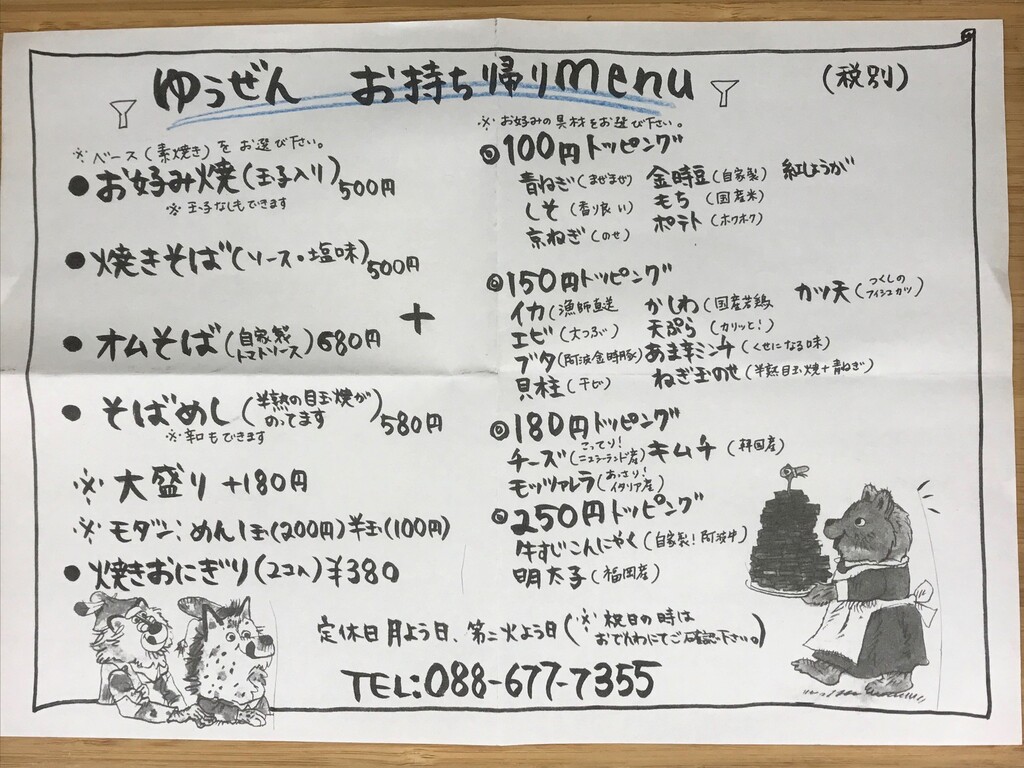 ゆうぜん お持ち帰りmenu
(税別)
※ベース(素焼き)をお選び下さい。
●お好み焼(玉子入り)500円
※玉子なしもできます
●焼きそば(ソース・塩味)500円
●オムそば(自家製トマトソース)680円
●そばめし(半熟の目玉焼がのってます)580円
※辛口もできます
※大盛り+180円
※モダン:めん1玉(200円)半玉(100円)
●焼きおにぎり(2コ入)¥380
+
※お好みの具材をお選び下さい。
◎100円トッピング
青ねぎ(まぜまぜ) 金時豆(自家製) 紅しょうが
しそ(香り良い) もち(国産米)
京ねぎ(のせ) ポテト(ホクホク)
◎150円トッピング
イカ(漁師直送 かしわ(国産若鶏 カツ天(つくしのフィッシュカツ)
エビ(大つぶ) 天ぷら(カリッと!)
ブタ(阿波金時豚) あま辛ミンチ(くせになる味)
貝柱(干し) ねぎ玉のせ(半熟目玉焼+青ねぎ)
◎180円トッピング
チーズ(こってり!ニュージーランド産) キムチ(韓国産)
モッツァレラ(あっさり!イタリア産)
◎250円トッピング
牛すじこんにゃく(自家製!阿波牛)
明太子(福岡産)
定休日 月よう日、第二火よう日(※祝日の時はおでんわにてご確認下さい。)
TEL:088-677-7355